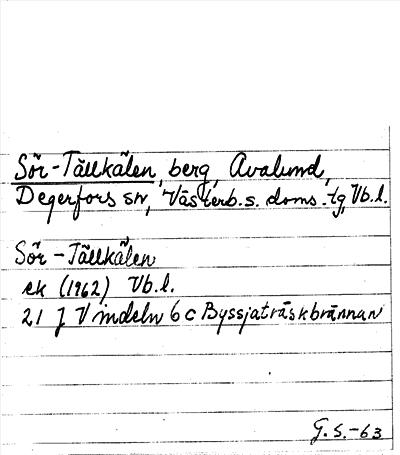 Sör-Tällkälen, berg, Avalund,
Degerfors sn, Västerb.s. doms.-tg, Vb.l.
Sör-Tällkälen
ek (1962) Vb.l.
21 J Vindeln 6c Byssjaträskbrännan
G.S.-63